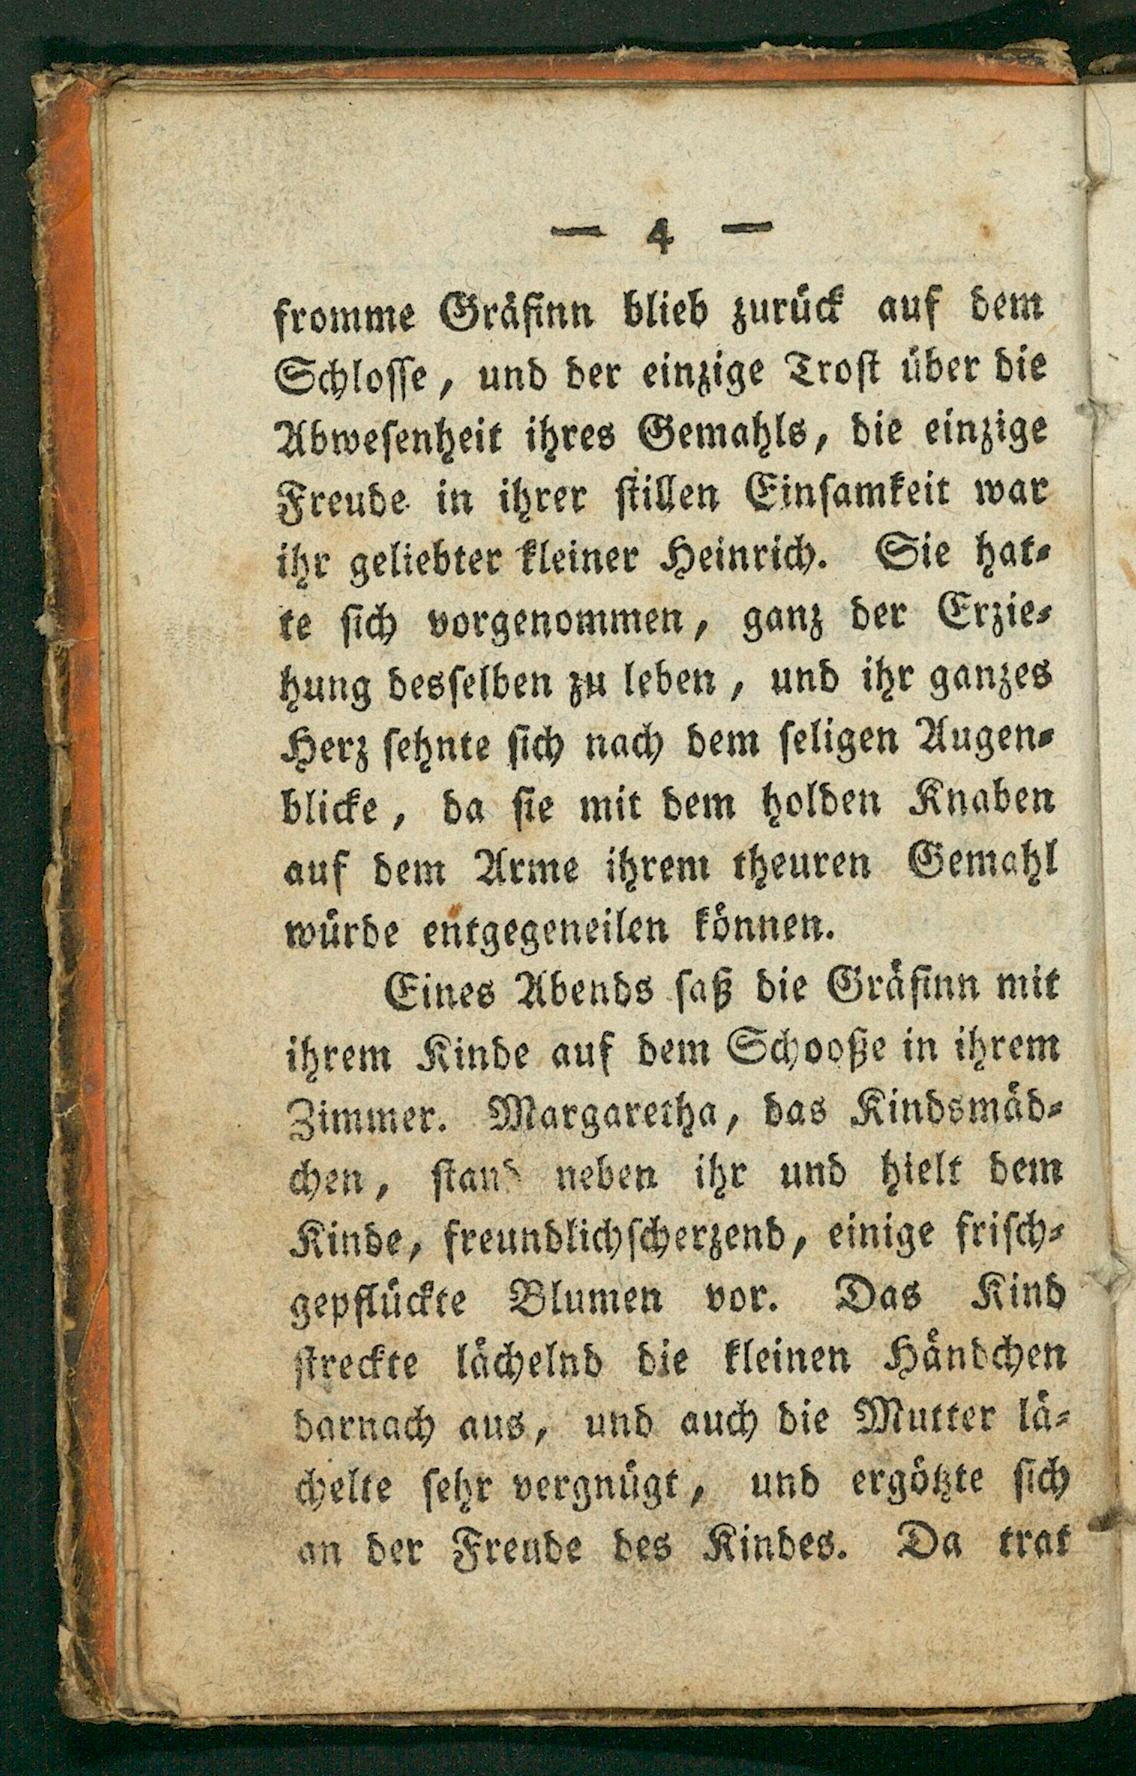 — 4 —
fromme Gräfinn blieb zurück auf dem
Schlosse, und der einzige Trost über die
Abwesenheit ihres Gemahls, die einzige
Freude in ihrer stillen Einsamkeit war
ihr geliebter kleiner Heinrich. Sie hat-
te sich vorgenommen, ganz der Erzie-
hung desselben zu leben, und ihr ganzes
Herz sehnte sich nach dem seligen Augen-
blicke, da sie mit dem holden Knaben
auf dem Arme ihrem theuren Gemahl
würde entgegeneilen können.
Eines Abends saß die Gräfinn mit
ihrem Kinde auf dem Schooße in ihrem
Zimmer. Margaretha, das Kindsmäd-
chen, stand neben ihr und hielt dem
Kinde, freundlichscherzend, einige frisch-
gepflückte Blumen vor. Das Kind
streckte lächelnd die kleinen Händchen
darnach aus, und auch die Mutter lä-
chelte sehr vergnügt, und ergötzte sich
an der Freude des Kindes. Da trat